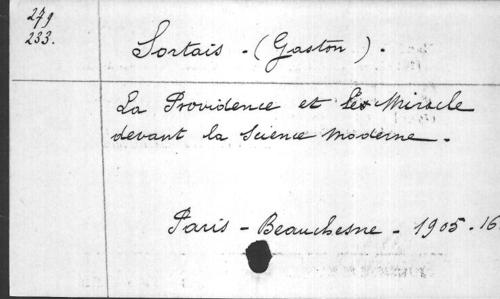 279
233.
Sortais - (Gaston).
La Providence et le Miracle
devant la Science Moderne.
Paris - Beauchesne - 1905. 16